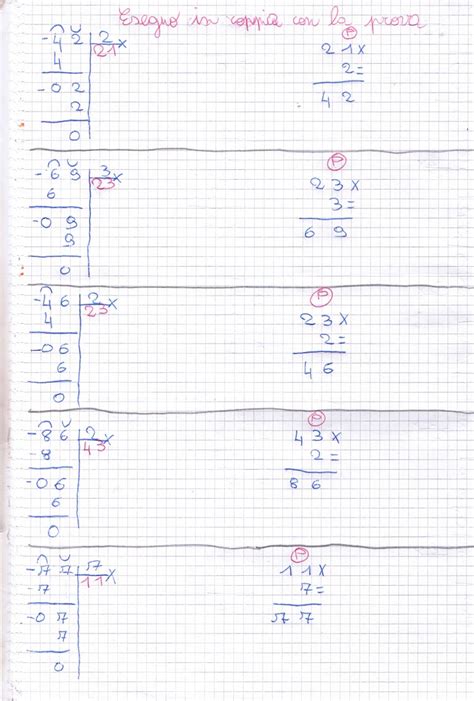 Eseguo in coppia con la prova
-42 | 2x
4 | 21
-02
2
0
P
21x
2=
42
-69 | 3x
6 | 23
-09
9
0
P
23x
3=
69
-46 | 2x
4 | 23
-06
6
0
P
23x
2=
46
-86 | 2x
-8 | 43
-06
6
0
P
43x
2=
86
-77 | 7x
-7 | 11
-07
7
0
P
11x
7=
77